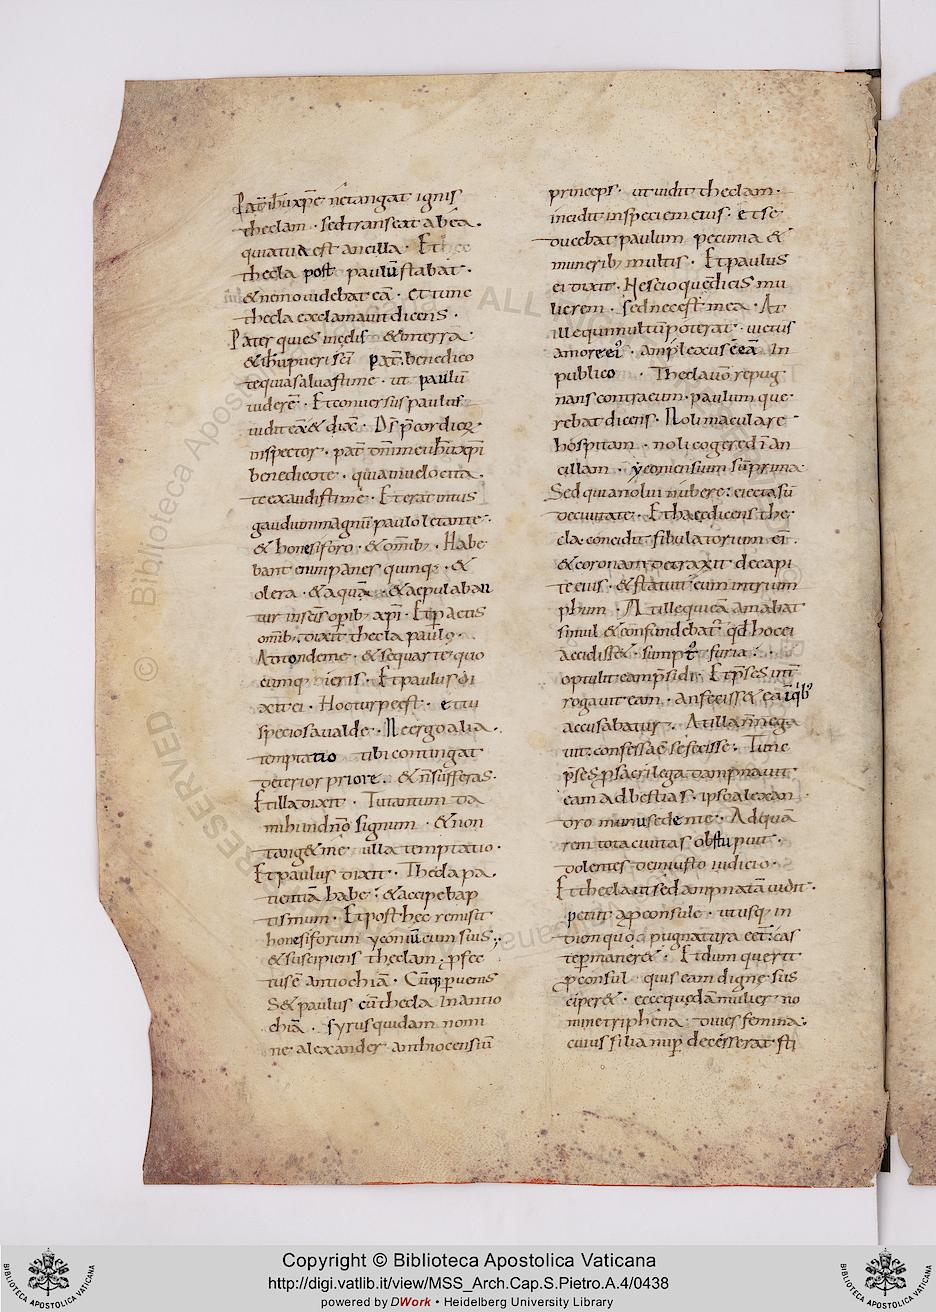 Pat̄ ihūxp̄e n̄ tangat ignis
theclam · sed transeat ab ea ·
quia tua est ancilla · Et
thecla post paulū stabat ·
& nemo uidebat eā · et tunc
thecla exclamauit dicens ·
Pater qui es in celis · & in terra
& ihū pueri sc̄i pat̄ · benedico
te quia saluasti me · ut paulū
uiderē · Et conuersus paulus
uidit eā & dix̄ · Ds̄ p̄cordioꝝ
inspector · pat̄ dn̄i mei ihūxp̄i
benedico te · quia in uelocita
te exaudisti me · Et erat intus
gaudium magnū paulo letante ·
& honesiforo · & omīb; · Habe
bant enim panes quinq; · &
olera · & aquā · & aepulaban
tur in sc̄is op̄ib; xp̄i · Et p̄actis
omīb; dixit thecla paulo ·
Attonde me · & sequar te quo
cumq; ieris · Et paulus di
xit ei · Hoc turpe est · et tu
speciosa ualde · Ne ergo alia
temptatio tibi contingat
deterior priore · & n̄ sufferas ·
Et illa dixit · Tu tantum da
mihi in dn̄o signum · & non
tang& me ulla temptatio ·
Et paulus dixit · Thecla pa
tientiā habe · & accipe bap
tismum · Et post hec remisit
honesiforum yconiū cum suis ·
& suscipiens theclam · p̄fec
tus ē antiochiā · Cūq; p̄uenis
s& paulus cū thecla in antio
chiā · syrus quidam nomi
ne alexander anthiocensiū
princeps · ut uidit theclam ·
incidit in speciem eius · et se
ducebat paulum pecunia &
munerib; multis · Et paulus
ei dixit · Nescio quē dicis mu
lierem · sed nec est mea · At
ille qui multū poterat · uictus
amore ei⁹ · amplexus ē eā in
publico · Thecla uō repug
nans contra eum · paulum que
rebat dicens · Noli maculare
hospitam · noli cogere dī an
cillam · yconiensium sū prima
Sed quia nolui nubere : eiecta sū
de ciuitate · Et haec dicens the
cla concidit fibulatorium ei⁹ ·
& coronam detraxit de capi
te eius · & statuit eum in trium
phum · At ille qui eā amabat
simul & confundebat̄ qd̄ hoc ei
accidiss& · sumpt⁹ furia ·
optulit eam p̄sidi · Et p̄ses int̄
rogauit eam · an feciss& ea ī qib⁹
accusabatur · At illa n̄ nega
uit : confessa ē se fecisse · Tunc
p̄ses p̄ sacrilega dampnauit
eam ad bestias · ipso alexan
dro munus edente · Ad quā
rem tota ciuitas obstupuit ·
dolentes de iniusto iudicio ·
Et thecla ut se dampnatā uidit ·
petiit a p̄consule · ut usq; in
diem quo depugnatura eēt : cas
te p̄maner& · Et dum querit
p̄consul quis eam digne sus
ciper& · ecce quedā mulier no
mine triphena diues femina ·
cuius filia nup̄ decesserat · sti
Copyright © Biblioteca Apostolica Vaticana
http://digi.vatlib.it/view/MSS_Arch.Cap.S.Pietro.A.4/0438
powered by DWork • Heidelberg University Library